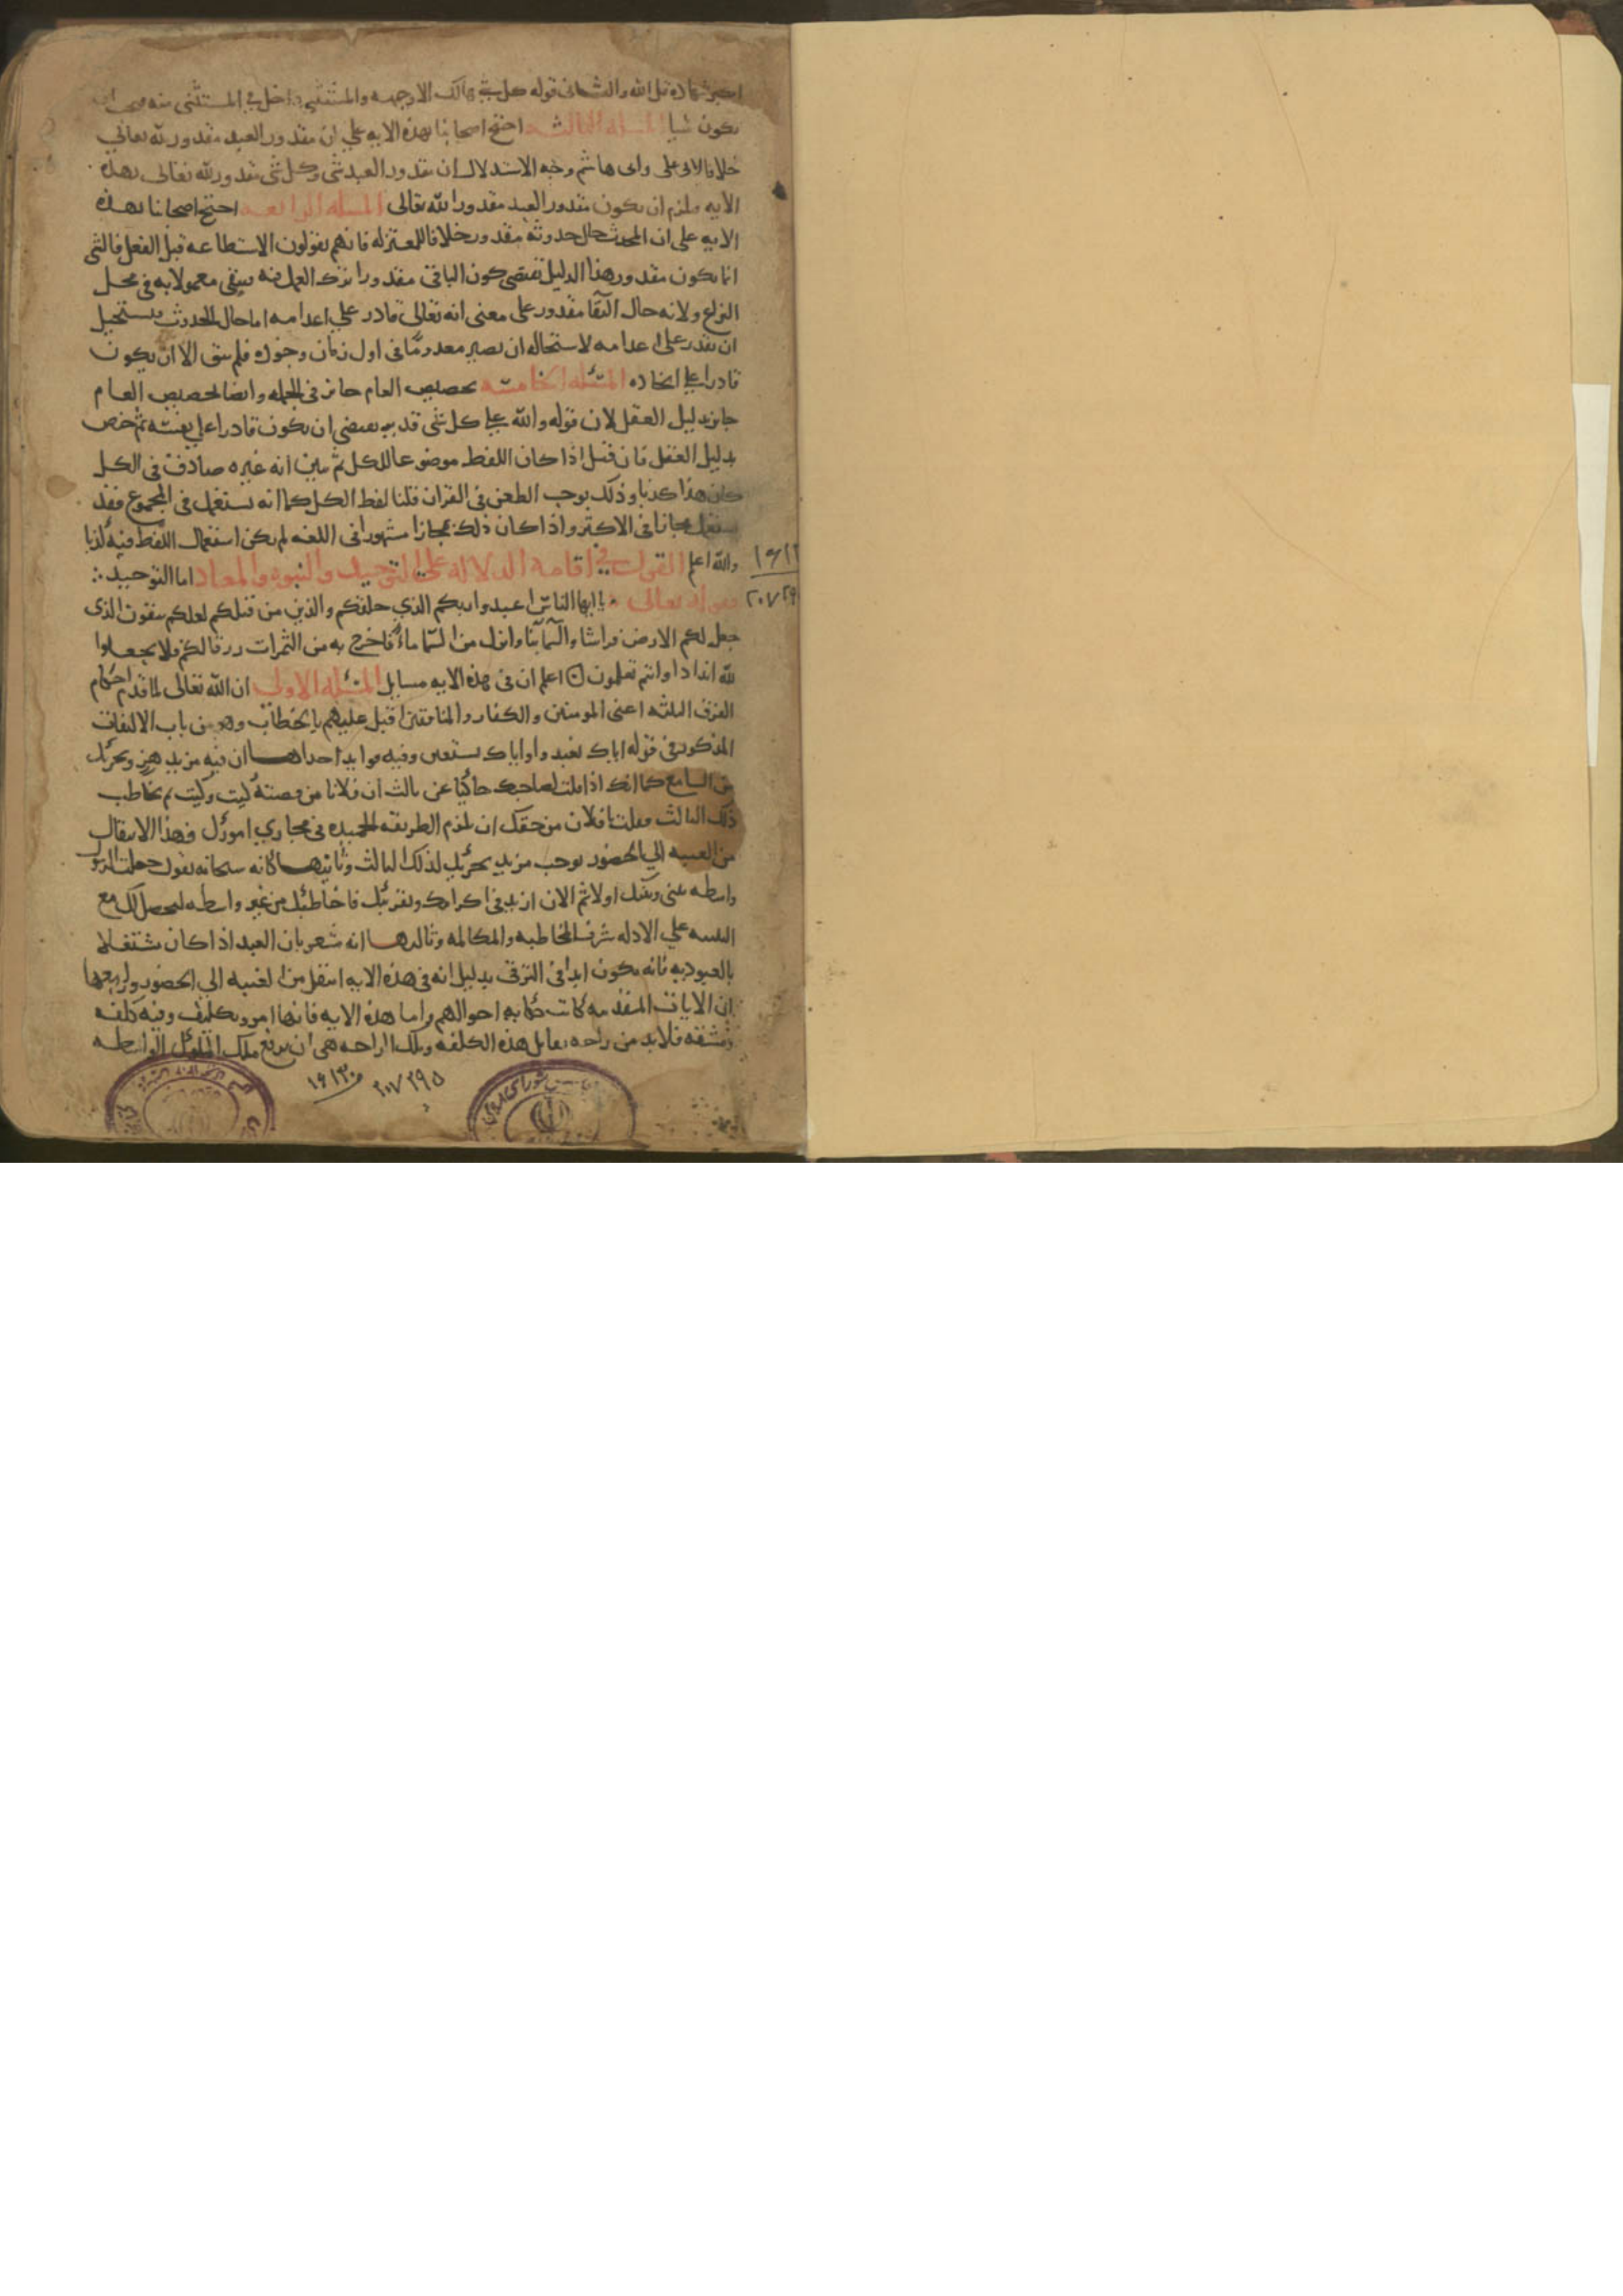 اكبر شهاده قل الله والثانى قوله كل شي هالك الا وجهه والمستثنى داخل في المستثنى منه
يكون شيا المسله الثالثه احتج اصحابنا بهذه الايه علي ان مقدور العبد مقدور لله تعالي
خلافا لابى على وابى هاشم وجه الاستدلال ان مقدور العبد شى وكل شى مقدور لله تعالى بهذه
الايه فلزم ان يكون مقدور العبد مقدورا لله تعالى المسله الرابعه احتج اصحابنا بهذه
الايه على ان المحدث حال حدوثه مقدور خلافا للمعتزله فانهم يقولون الاستطاعه قبل الفعل فالشى
انما يكون مقدور هذا الدليل يقتضى كون الباقى مقدورا ترك العمل به يبقى معمولا به فى محل
النزاع ولانه حال البقا مقدور على معنى انه تعالى قادر علي اعدامه اما حال الحدوث يستحيل
ان يقدر على اعدامه لاستحاله ان يصير معدوما فى اول زمان وجوده فلم يبق الا ان يكون
قادرا على ايجاده المسئله الخامسه تخصيص العام جايز فى الجمله وايضا تخصيص العام
جايز بدليل العقل لان قوله والله علي كل شى قدير يقتضى ان يكون قادرا على نفسه ثم خص
بدليل العقل فان قيل اذا كان اللفظ موضوعا للكل ثم تبين انه غير صادق فى الكل
كان هذا كذبا وذلك يوجب الطعن فى القران قلنا لفظ الكل كما انه يستعمل فى المجموع فقد
يستعمل مجازا فى الاكثر واذا كان ذلك مجازا مشهورا فى اللغه لم يكن استعمال اللفظ فيه كذبا
والله اعلم القول في اقامة الدلاله على التوحيد والنبوه والمعاد اما التوحيد
فقوله تعالى يا ايها الناس اعبدوا ربكم الذي خلقكم والذين من قبلكم لعلكم تتقون الذى
جعل لكم الارض فراشا والسما بنا وانزل من السما ماء فاخرج به من الثمرات رزقا لكم فلا تجعلوا
لله اندادا وانتم تعلمون اعلم ان فى هذه الايه مسايل المسئله الاولى ان الله تعالى لما قدم احكام
الفرق الثلثه اعنى المومنين والكفار والمنافقين اقبل عليهم بالخطاب وهو من باب الالتفات
المذكور فى قوله اياك نعبد واياك نستعين وفيه فوايد احداها ان فيه مزيد هز وتحريك
من السامع كما انك اذا قلت لصاحبك حاكيا عن ثالث ان فلانا من قصته كيت وكيت ثم تخاطب
ذلك الثالث فقلت يا فلان من حقك ان تلزم الطريقه الحميده فى مجاري امورك فهذا الانتقال
من الغيبه الي الحضور يوجب مزيد تحريك لذلك الثالث وثانيها كانه سبحانه يقول جعلت الرسول
واسطه بينى وبينك اولا ثم الان ازيد فى اكرامك وتقريبك فاخاطبك من غير واسطه ليحصل لك مع
التنبيه علي الادله شرف المخاطبه والمكالمه وثالثها انه مشعر بان العبد اذا كان مشتغلا
بالعبوديه فانه يكون ابدا فى الترقى بدليل انه فى هذه الايه انتقل من الغيبه الي الحضور ورابعها
ان الايات المتقدمه كانت حكايه احوالهم واما هذه الايه فانها امر وتكليف وفيه كلفه
ومشقه فلا بد من راحه تقابل هذه الكلفه وتلك الراحه هى ان يرفع ملك الملوك الواسطه
۱۶۱۳۰
۲۰۷۲۹۵